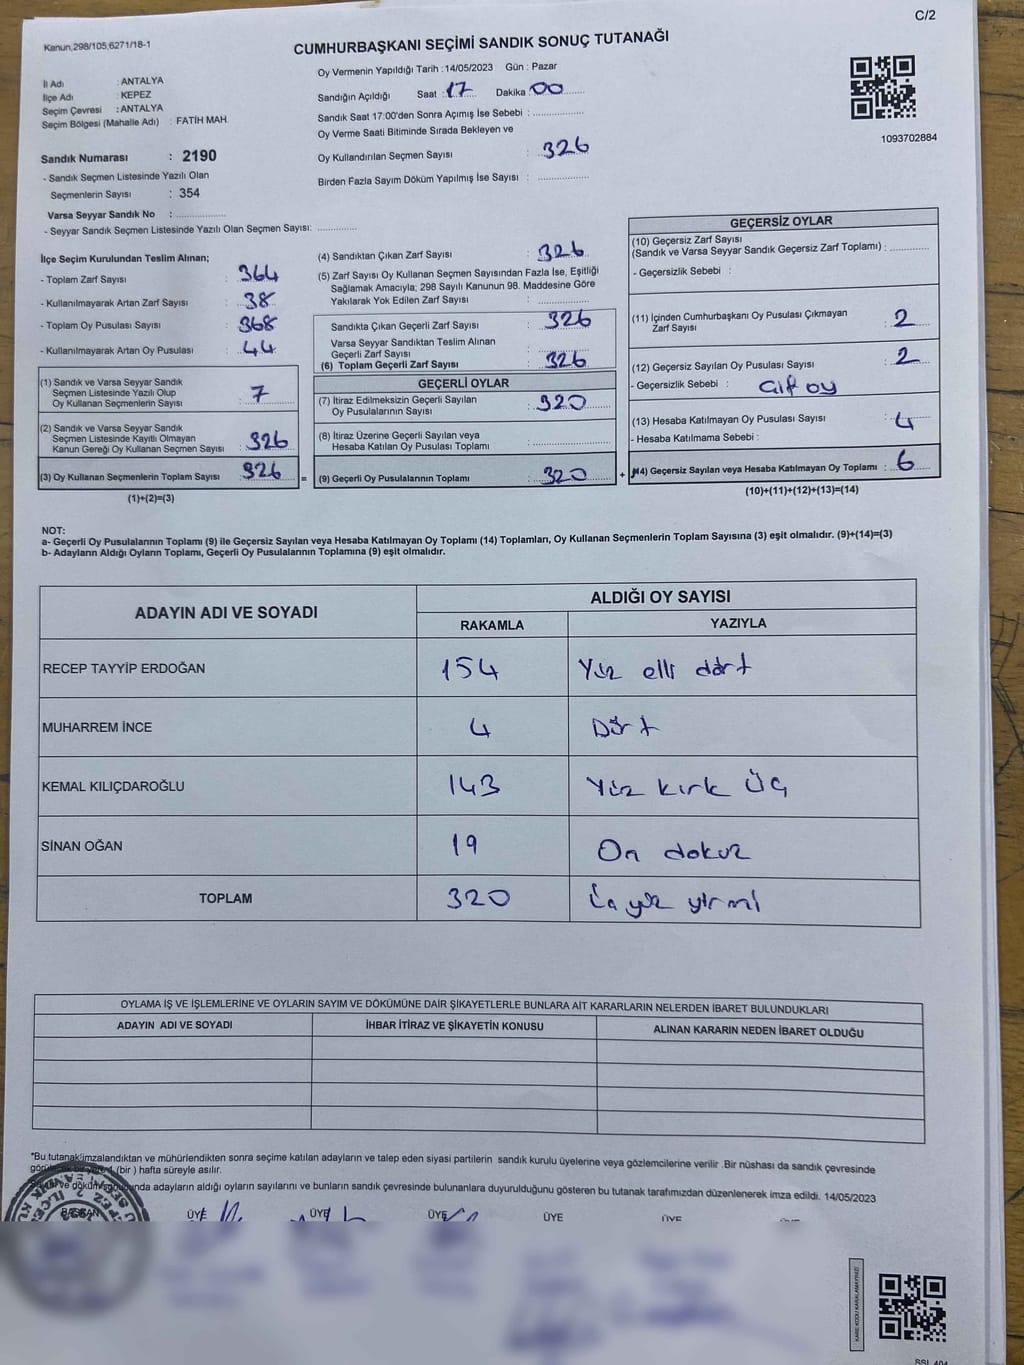 C/2
Kanun,298/105;6271/18-1
CUMHURBAŞKANI SEÇİMİ SANDIK SONUÇ TUTANAĞI
İl Adı : ANTALYA
İlçe Adı : KEPEZ
Seçim Çevresi : ANTALYA
Seçim Bölgesi (Mahalle Adı) : FATİH MAH.
Sandık Numarası : 2190
- Sandık Seçmen Listesinde Yazılı Olan
Seçmenlerin Sayısı : 354
Varsa Seyyar Sandık No :
- Seyyar Sandık Seçmen Listesinde Yazılı Olan Seçmen Sayısı:
Oy Vermenin Yapıldığı Tarih : 14/05/2023 Gün : Pazar
Sandığın Açıldığı Saat : 17 Dakika 00
Sandık Saat 17:00'den Sonra Açımış İse Sebebi :
Oy Verme Saati Bitiminde Sırada Bekleyen ve
Oy Kullandırılan Seçmen Sayısı : 326
Birden Fazla Sayım Döküm Yapılmış İse Sayısı :
1093702884
İlçe Seçim Kurulundan Teslim Alınan;
- Toplam Zarf Sayısı : 364
- Kullanılmayarak Artan Zarf Sayısı : 38
- Toplam Oy Pusulası Sayısı : 368
- Kullanılmayarak Artan Oy Pusulası : 44
(1) Sandık ve Varsa Seyyar Sandık
Seçmen Listesinde Yazılı Olup
Oy Kullanan Seçmenlerin Sayısı : 7
(2) Sandık ve Varsa Seyyar Sandık
Seçmen Listesinde Kayıtlı Olmayan
Kanun Gereği Oy Kullanan Seçmen Sayısı : 326
(3) Oy Kullanan Seçmenlerin Toplam Sayısı : 326
(1)+(2)=(3)
(4) Sandıktan Çıkan Zarf Sayısı : 326
(5) Zarf Sayısı Oy Kullanan Seçmen Sayısından Fazla İse, Eşitliği
Sağlamak Amacıyla; 298 Sayılı Kanunun 98. Maddesine Göre
Yakılarak Yok Edilen Zarf Sayısı :
Sandıkta Çıkan Geçerli Zarf Sayısı : 326
Varsa Seyyar Sandıktan Teslim Alınan
Geçerli Zarf Sayısı :
(6) Toplam Geçerli Zarf Sayısı : 326
GEÇERLİ OYLAR
(7) İtiraz Edilmeksizin Geçerli Sayılan
Oy Pusulalarının Sayısı : 320
(8) İtiraz Üzerine Geçerli Sayılan veya
Hesaba Katılan Oy Pusulası Toplamı :
= (9) Geçerli Oy Pusulalarının Toplamı : 320 +
GEÇERSİZ OYLAR
(10) Geçersiz Zarf Sayısı
(Sandık ve Varsa Seyyar Sandık Geçersiz Zarf Toplamı) :
- Geçersizlik Sebebi :
(11) İçinden Cumhurbaşkanı Oy Pusulası Çıkmayan
Zarf Sayısı : 2
(12) Geçersiz Sayılan Oy Pusulası Sayısı : 2
- Geçersizlik Sebebi : Çift oy
(13) Hesaba Katılmayan Oy Pusulası Sayısı : 4
- Hesaba Katılmama Sebebi :
(14) Geçersiz Sayılan veya Hesaba Katılmayan Oy Toplamı : 6
(10)+(11)+(12)+(13)=(14)
NOT:
a- Geçerli Oy Pusulalarının Toplamı (9) ile Geçersiz Sayılan veya Hesaba Katılmayan Oy Toplamı (14) Toplamları, Oy Kullanan Seçmenlerin Toplam Sayısına (3) eşit olmalıdır. (9)+(14)=(3)
b- Adayların Aldığı Oyların Toplamı, Geçerli Oy Pusulalarının Toplamına (9) eşit olmalıdır.
ADAYIN ADI VE SOYADI
ALDIĞI OY SAYISI
RAKAMLA YAZIYLA
RECEP TAYYİP ERDOĞAN 154 Yüz elli dört
MUHARREM İNCE 4 Dört
KEMAL KILIÇDAROĞLU 143 Yüz kırk Üç
SİNAN OĞAN 19 On dokuz
TOPLAM 320 Üç yüz yirmi
OYLAMA İŞ VE İŞLEMLERİNE VE OYLARIN SAYIM VE DÖKÜMÜNE DAİR ŞİKAYETLERLE BUNLARA AİT KARARLARIN NELERDEN İBARET BULUNDUKLARI
ADAYIN ADI VE SOYADI İHBAR İTİRAZ VE ŞİKAYETİN KONUSU ALINAN KARARIN NEDEN İBARET OLDUĞU
*Bu tutanak imzalandıktan ve mühürlendikten sonra seçime katılan adayların ve talep eden siyasi partilerin sandık kurulu üyelerine veya gözlemcilerine verilir .Bir nüshası da sandık çevresinde
(bir ) hafta süreyle asılır.
adayların aldığı oyların sayılarını ve bunların sandık çevresinde bulunanlara duyurulduğunu gösteren bu tutanak tarafımızdan düzenlenerek imza edildi. 14/05/2023
BAŞKAN ÜYE ÜYE ÜYE ÜYE ÜYE ÜYE